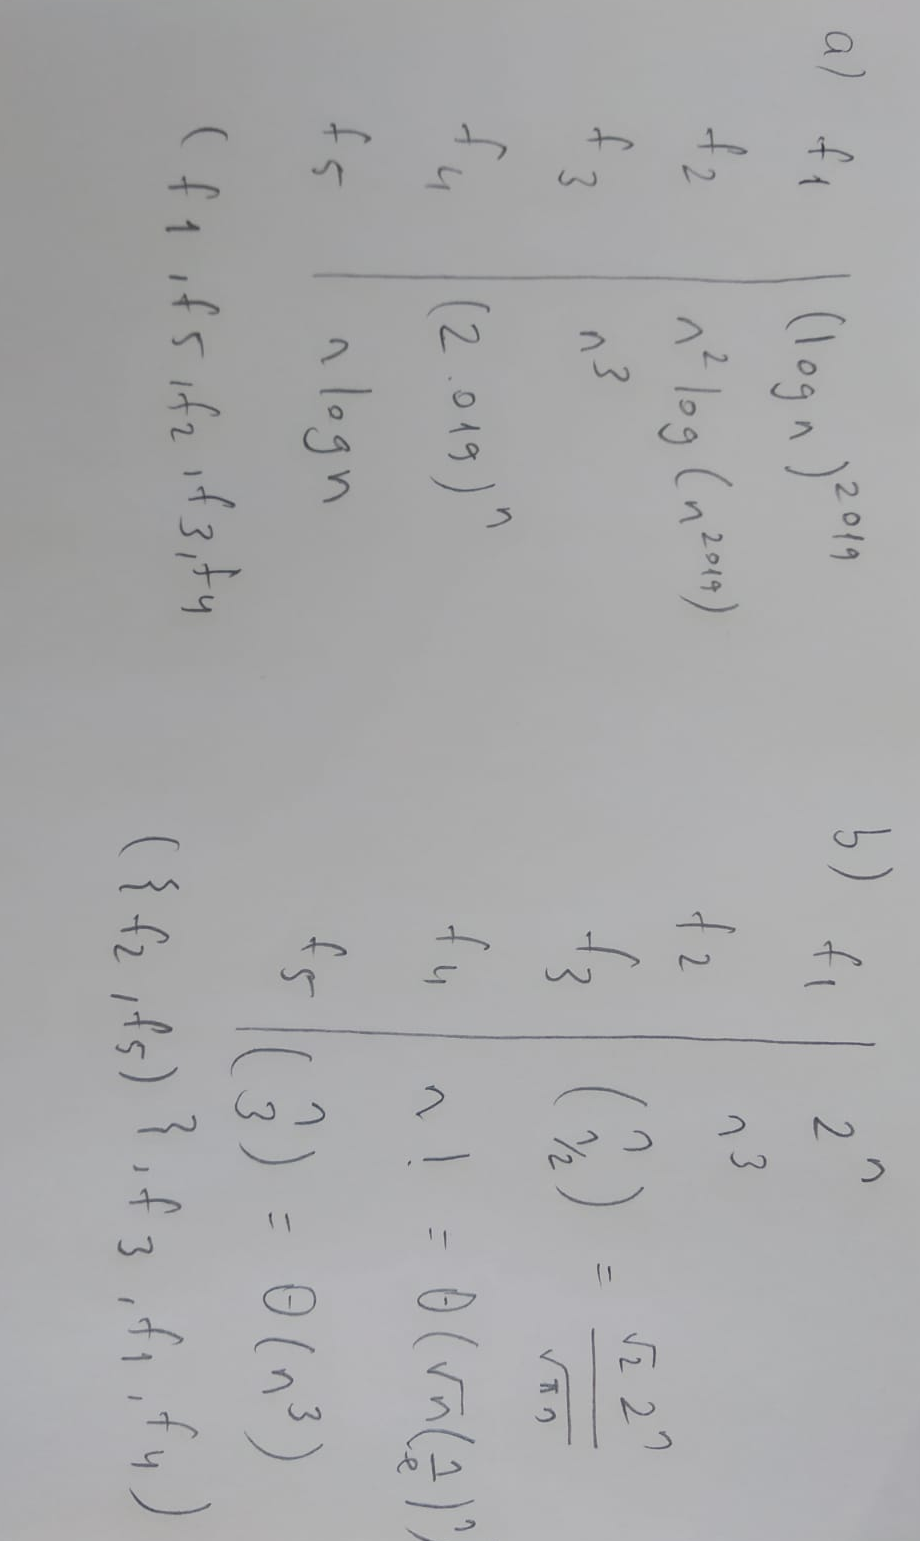 a) f1 | (log n)^2019
f2 | n^2 log (n^2019)
f3 | n^3
f4 | (2.019)^n
f5 | n log n
(f1, f5, f2, f3, f4
b) f1 | 2^n
f2 | n^3
f3 | (n n/2) = √2 2^n / √πn
f4 | n! = Θ(√n(n/e)^n)
f5 | (n 3) = Θ(n^3)
({f2, f5)}, f3, f1, f4)